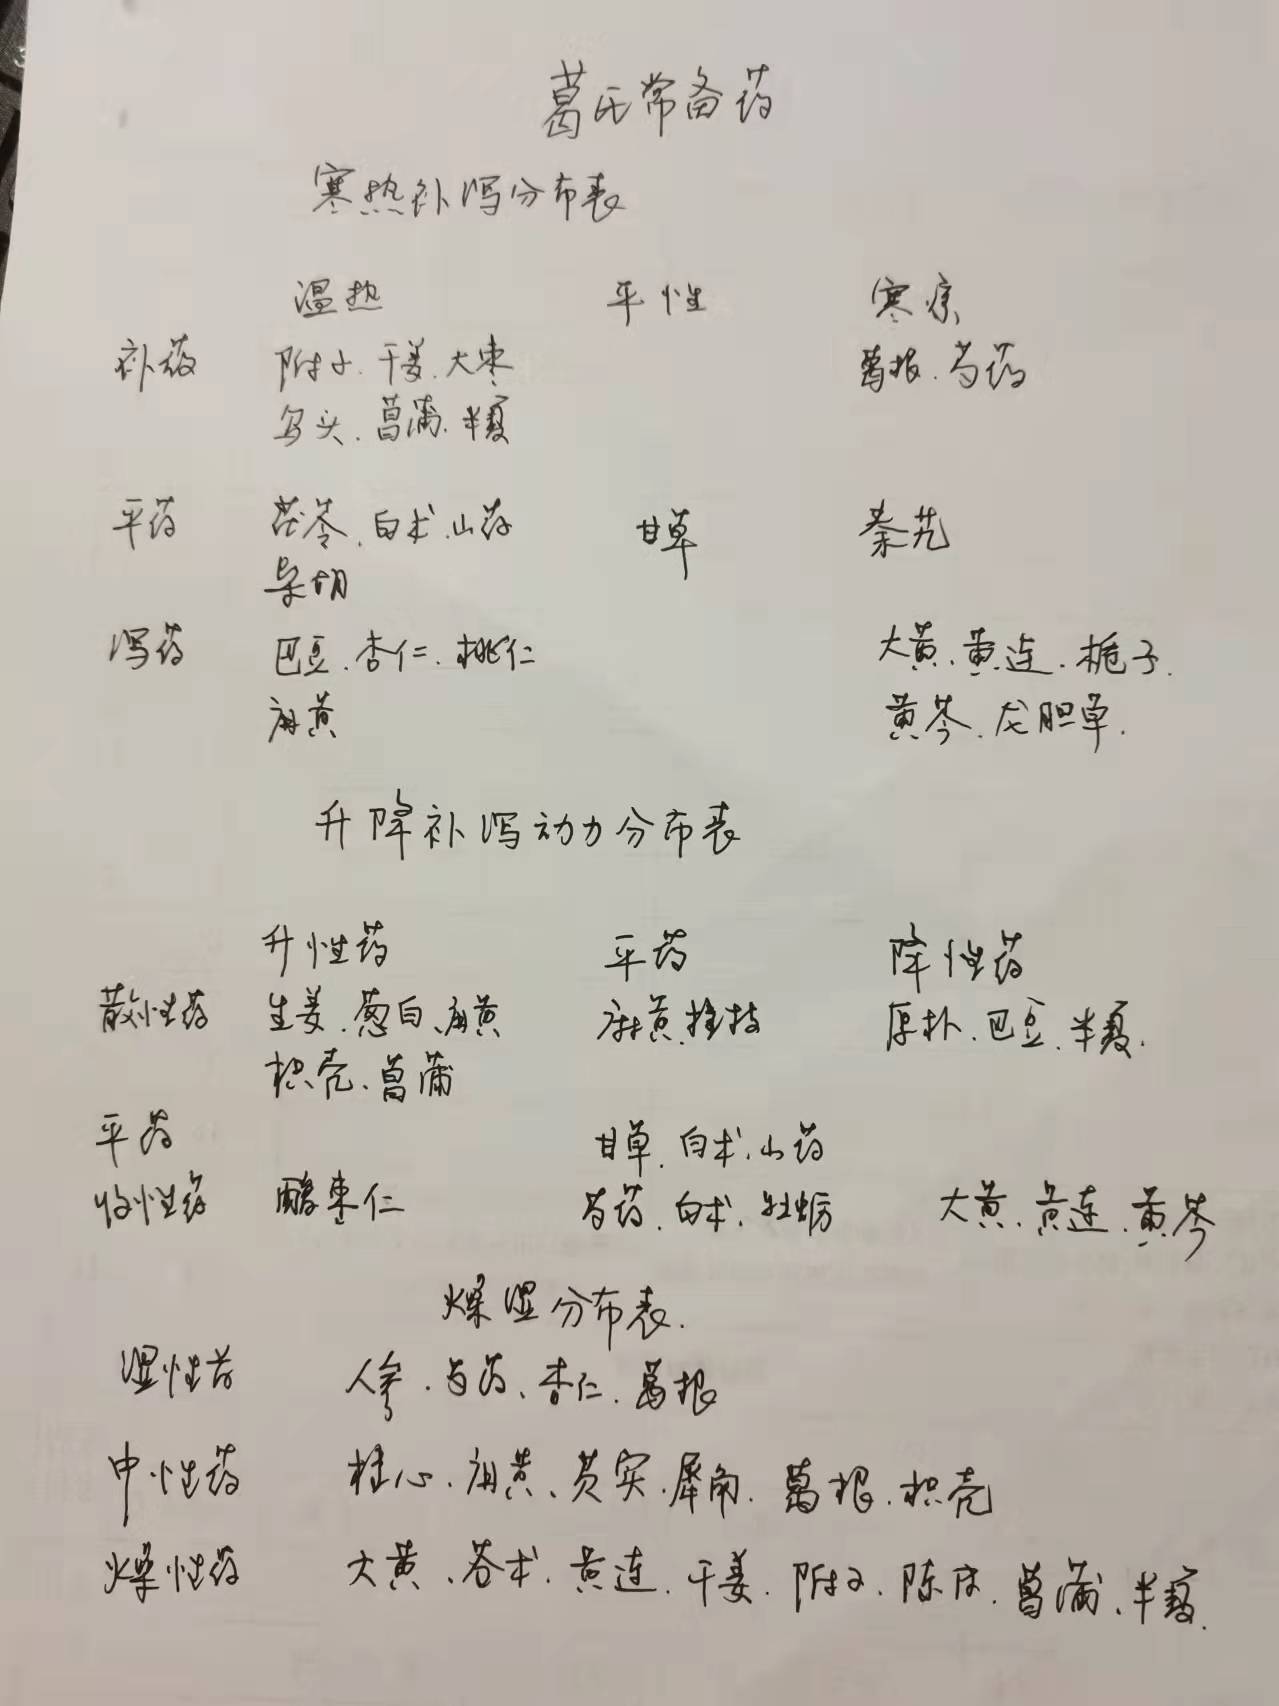 葛氏常备药
寒热补泻分布表
温热 平性 寒凉
补药 附子.干姜.大枣 葛根.芍药
乌头.菖蒲.半夏
平药 茯苓.白术.山药 甘草 秦艽
柴胡
泻药 巴豆.杏仁.桃仁 大黄、黄连.栀子.
麻黄 黄芩.龙胆草.
升降补泻动力分布表
升性药 平药 降性药
散性药 生姜.葱白、麻黄 麻黄.桂枝 厚朴.巴豆.半夏.
枳壳、菖蒲
平药 甘草.白术.山药
收性药 酸枣仁 芍药.白术.牡蛎 大黄.黄连.黄芩
燥湿分布表.
湿性药 人参.芍药、杏仁.葛根
中性药 桂心.麻黄、芡实.犀角.葛根.枳壳
燥性药 大黄、苍术.黄连.干姜.附子.陈皮.菖蒲、半夏.